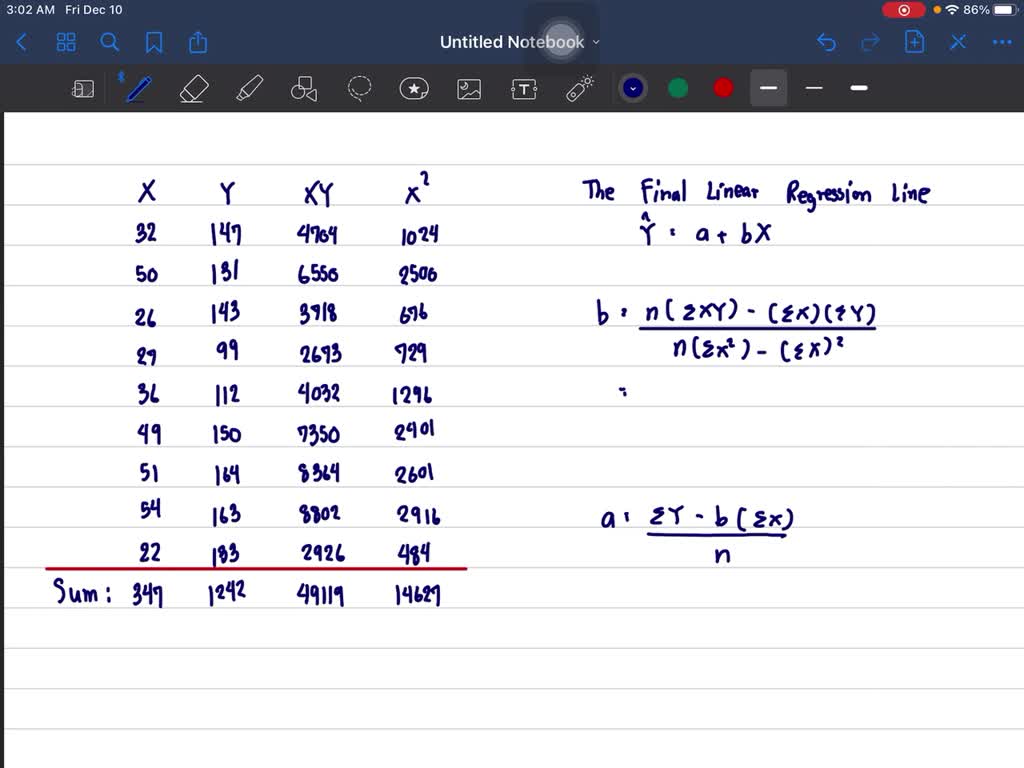 3:02 AM Fri Dec 10 86%
Untitled Notebook
X Y XY X²
32 147 4704 1024
50 131 6550 2500
26 143 3718 676
27 99 2673 729
36 112 4032 1296
49 150 7350 2401
51 164 8364 2601
54 163 8802 2916
22 133 2926 484
Sum: 347 1242 49119 14627
The Final Linear Regression Line
Ŷ = a + bX
b = n(ΣXY) - (ΣX)(ΣY)
n(ΣX²) - (ΣX)²
=
a = ΣY - b(ΣX)
n